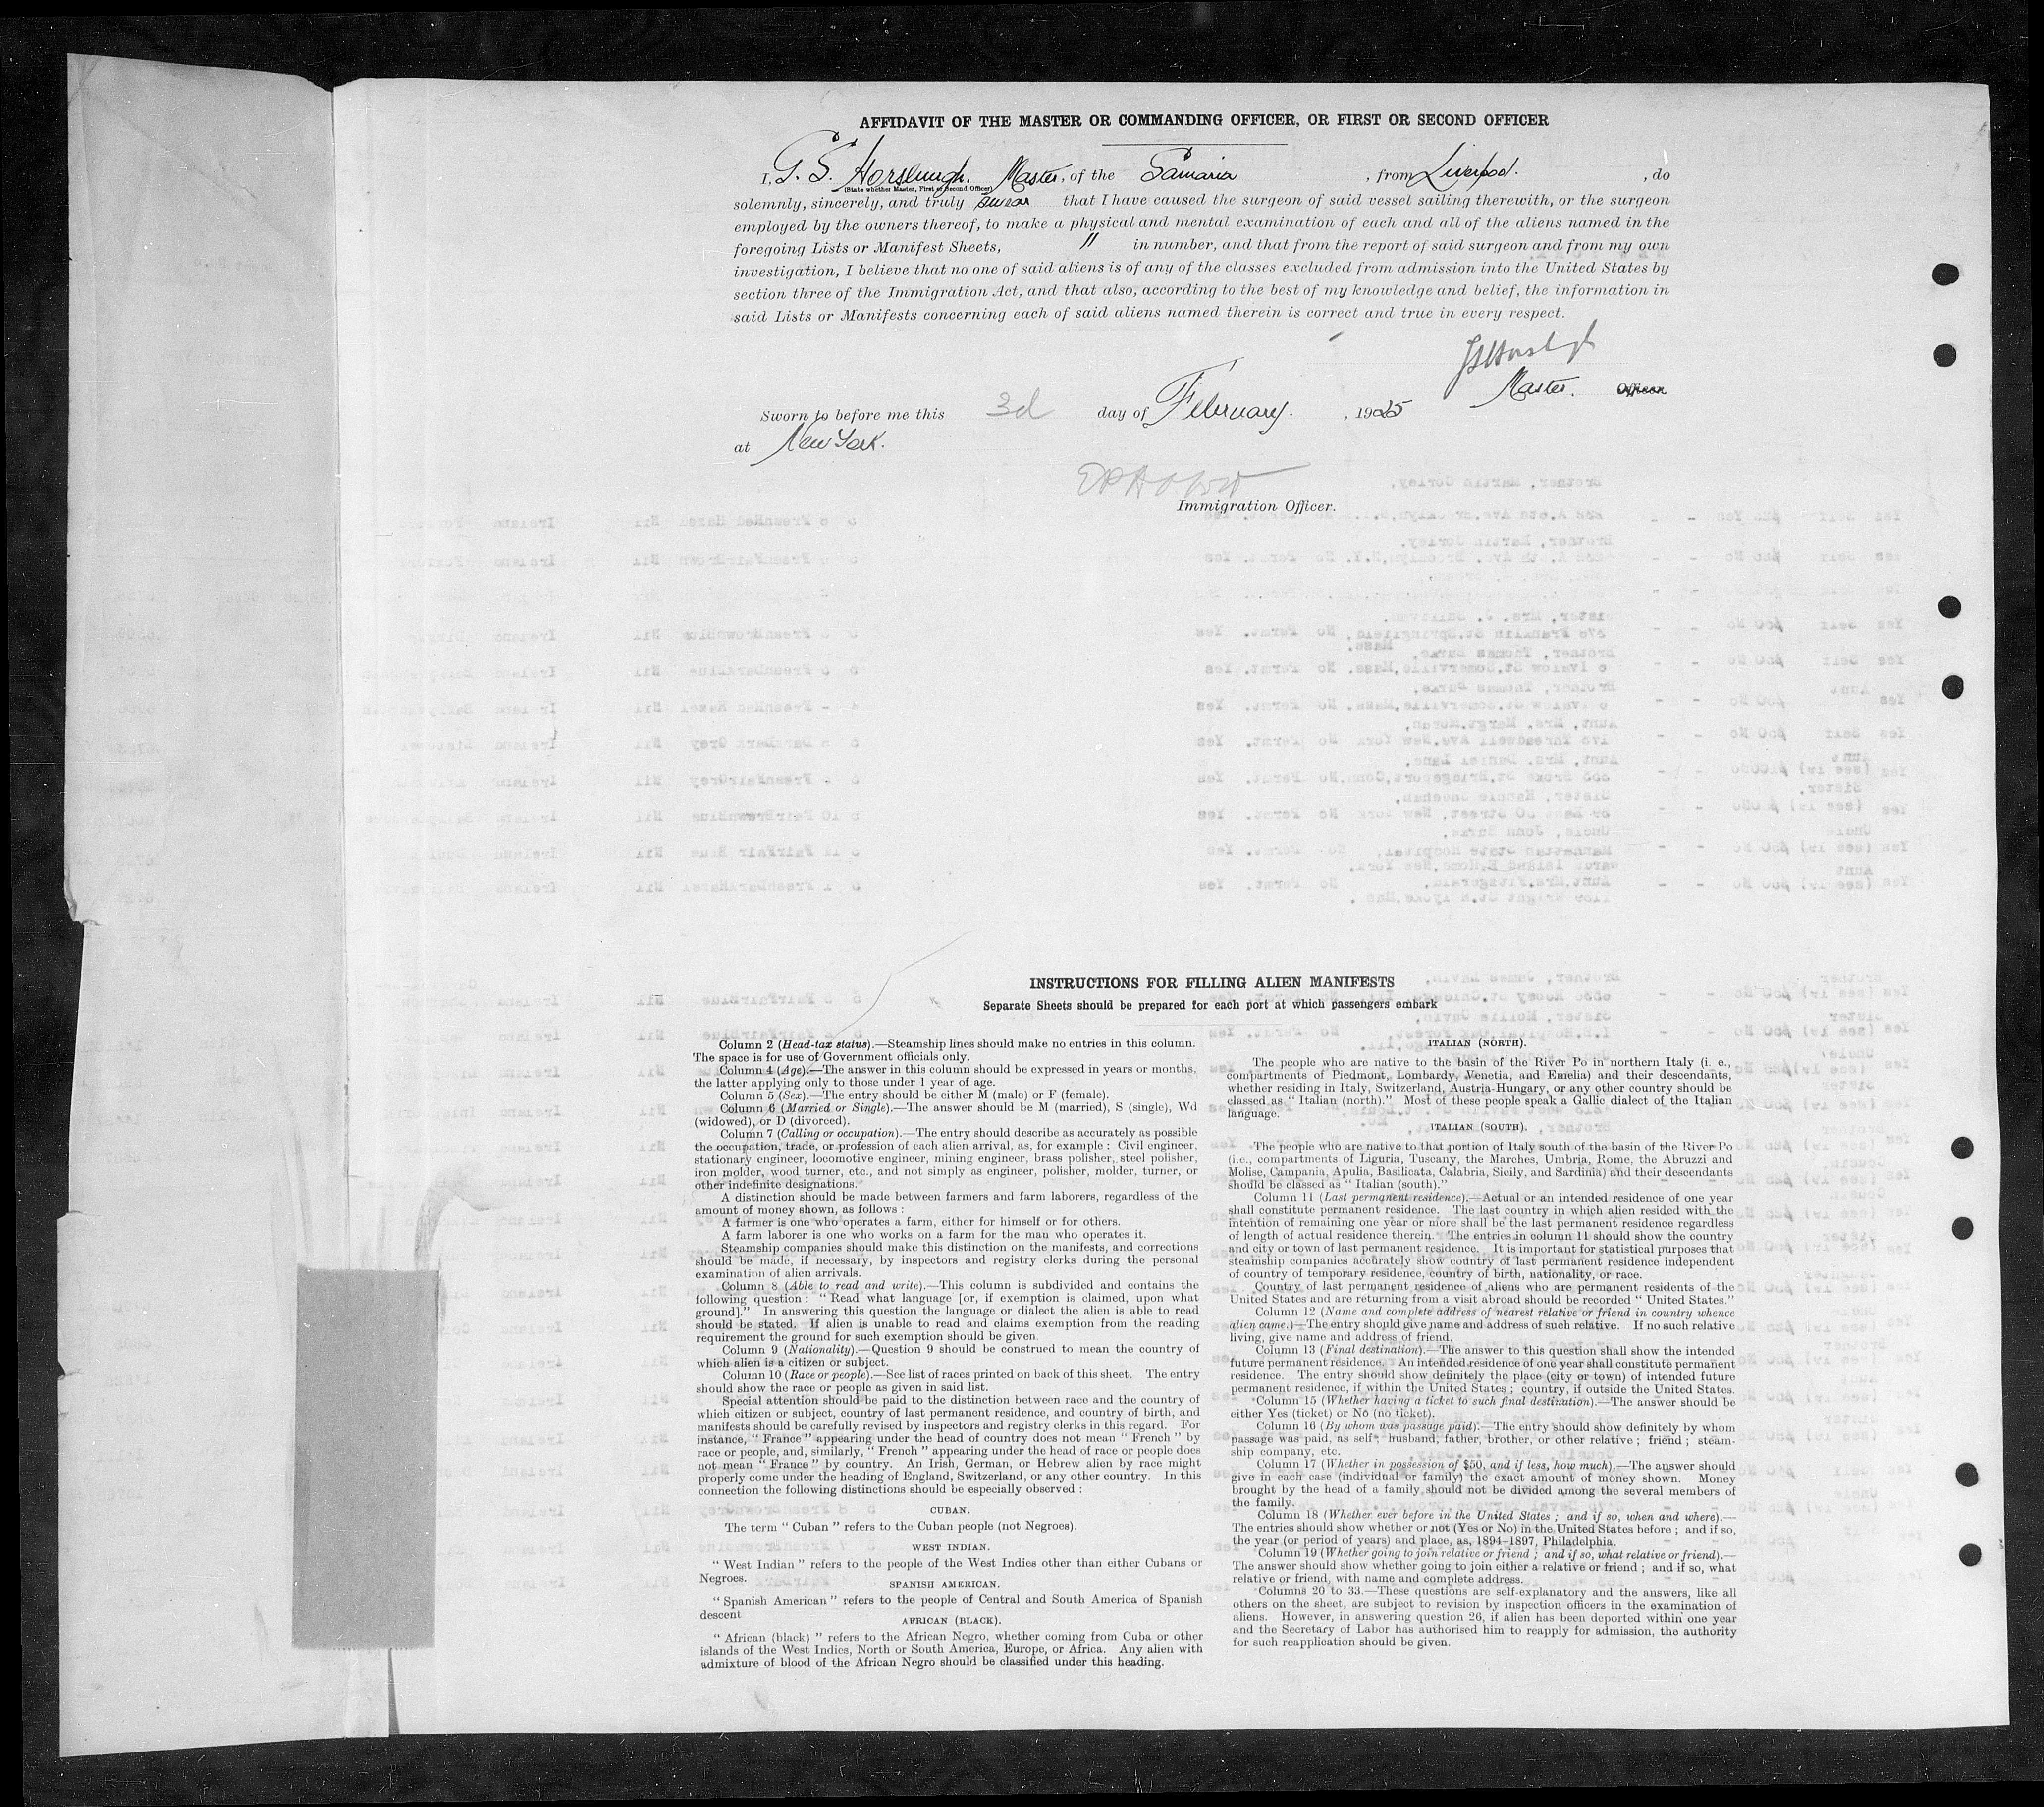 AFFIDAVIT OF THE MASTER OR COMMANDING OFFICER, OR FIRST OR SECOND OFFICER
I, G. S. Horsburgh. Master, of the Samaria , from Liverpool. , do
(State whether Master, First or Second Officer)
solemnly, sincerely, and truly swear that I have caused the surgeon of said vessel sailing therewith, or the surgeon
employed by the owners thereof, to make a physical and mental examination of each and all of the aliens named in the
foregoing Lists or Manifest Sheets, 11 in number, and that from the report of said surgeon and from my own
investigation, I believe that no one of said aliens is of any of the classes excluded from admission into the United States by
section three of the Immigration Act, and that also, according to the best of my knowledge and belief, the information in
said Lists or Manifests concerning each of said aliens named therein is correct and true in every respect.
Master. Officer.
Sworn to before me this 3d day of February. , 1925
at New York.
Immigration Officer.
INSTRUCTIONS FOR FILLING ALIEN MANIFESTS
Separate Sheets should be prepared for each port at which passengers embark
Column 2 (Head-tax status).—Steamship lines should make no entries in this column.
The space is for use of Government officials only.
Column 4 (Age).—The answer in this column should be expressed in years or months,
the latter applying only to those under 1 year of age.
Column 5 (Sex).—The entry should be either M (male) or F (female).
Column 6 (Married or Single).—The answer should be M (married), S (single), Wd
(widowed), or D (divorced).
Column 7 (Calling or occupation).—The entry should describe as accurately as possible
the occupation, trade, or profession of each alien arrival, as, for example : Civil engineer,
stationary engineer, locomotive engineer, mining engineer, brass polisher, steel polisher,
iron molder, wood turner, etc., and not simply as engineer, polisher, molder, turner, or
other indefinite designations.
A distinction should be made between farmers and farm laborers, regardless of the
amount of money shown, as follows :
A farmer is one who operates a farm, either for himself or for others.
A farm laborer is one who works on a farm for the man who operates it.
Steamship companies should make this distinction on the manifests, and corrections
should be made, if necessary, by inspectors and registry clerks during the personal
examination of alien arrivals.
Column 8 (Able to read and write).—This column is subdivided and contains the
following question : " Read what language [or, if exemption is claimed, upon what
ground]." In answering this question the language or dialect the alien is able to read
should be stated. If alien is unable to read and claims exemption from the reading
requirement the ground for such exemption should be given.
Column 9 (Nationality).—Question 9 should be construed to mean the country of
which alien is a citizen or subject.
Column 10 (Race or people).—See list of races printed on back of this sheet. The entry
should show the race or people as given in said list.
Special attention should be paid to the distinction between race and the country of
which citizen or subject, country of last permanent residence, and country of birth, and
manifests should be carefully revised by inspectors and registry clerks in this regard. For
instance, " France " appearing under the head of country does not mean " French " by
race or people, and, similarly, " French " appearing under the head of race or people does
not mean " France " by country. An Irish, German, or Hebrew alien by race might
properly come under the heading of England, Switzerland, or any other country. In this
connection the following distinctions should be especially observed :
CUBAN.
The term " Cuban " refers to the Cuban people (not Negroes).
WEST INDIAN.
" West Indian " refers to the people of the West Indies other than either Cubans or
Negroes.
SPANISH AMERICAN.
" Spanish American " refers to the people of Central and South America of Spanish
descent
AFRICAN (BLACK).
" African (black) " refers to the African Negro, whether coming from Cuba or other
islands of the West Indies, North or South America, Europe, or Africa. Any alien with
admixture of blood of the African Negro should be classified under this heading.
ITALIAN (NORTH).
The people who are native to the basin of the River Po in northern Italy (i. e.,
compartments of Piedmont, Lombardy, Venetia, and Emelia) and their descendants,
whether residing in Italy, Switzerland, Austria-Hungary, or any other country should be
classed as " Italian (north)." Most of these people speak a Gallic dialect of the Italian
language.
ITALIAN (SOUTH).
The people who are native to that portion of Italy south of the basin of the River Po
(i.e., compartments of Liguria, Tuscany, the Marches, Umbria, Rome, the Abruzzi and
Molise, Campania, Apulia, Basilicata, Calabria, Sicily, and Sardinia) and their descendants
should be classed as " Italian (south)."
Column 11 (Last permanent residence).—Actual or an intended residence of one year
shall constitute permanent residence. The last country in which alien resided with the
intention of remaining one year or more shall be the last permanent residence regardless
of length of actual residence therein. The entries in column 11 should show the country
and city or town of last permanent residence. It is important for statistical purposes that
steamship companies accurately show country of last permanent residence independent
of country of temporary residence, country of birth, nationality, or race.
Country of last permanent residence of aliens who are permanent residents of the
United States and are returning from a visit abroad should be recorded " United States."
Column 12 (Name and complete address of nearest relative or friend in country whence
alien came.)—The entry should give name and address of such relative. If no such relative
living, give name and address of friend.
Column 13 (Final destination).—The answer to this question shall show the intended
future permanent residence. An intended residence of one year shall constitute permanent
residence. The entry should show definitely the place (city or town) of intended future
permanent residence, if within the United States ; country, if outside the United States.
Column 15 (Whether having a ticket to such final destination).—The answer should be
either Yes (ticket) or No (no ticket).
Column 16 (By whom was passage paid).—The entry should show definitely by whom
passage was paid, as self ; husband, father, brother, or other relative ; friend ; steam-
ship company, etc.
Column 17 (Whether in possession of $50, and if less, how much).—The answer should
give in each case (individual or family) the exact amount of money shown. Money
brought by the head of a family should not be divided among the several members of
the family.
Column 18 (Whether ever before in the United States ; and if so, when and where).—
The entries should show whether or not (Yes or No) in the United States before ; and if so,
the year (or period of years) and place, as, 1894–1897, Philadelphia.
Column 19 (Whether going to join relative or friend ; and if so, what relative or friend).—
The answer should show whether going to join either a relative or friend ; and if so, what
relative or friend, with name and complete address.
Columns 20 to 33.—These questions are self-explanatory and the answers, like all
others on the sheet, are subject to revision by inspection officers in the examination of
aliens. However, in answering question 26, if alien has been deported within one year
and the Secretary of Labor has authorised him to reapply for admission, the authority
for such reapplication should be given.